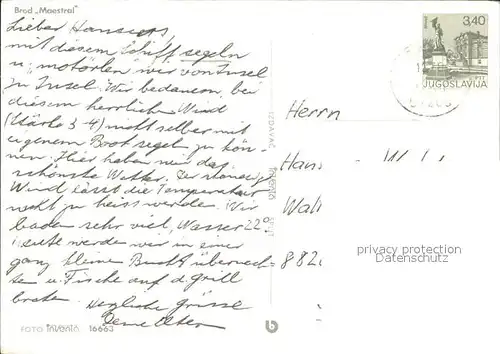 Brod „Maestral"
Lieber Hans
mit diesem Schiff segeln
u. motörlen wir von Insel
zu Insel. Wir bedauern, bei
diesem herrlichen Wind
(Stärke 3-4) nicht selber mit
eigenem Boot segeln zu kön-
nen. Hier haben wir das
schönste Wetter. Der ständige
Wind lässt die Temperatur
nicht zu heiss werden. Wir
baden sehr viel, Wasser 22°.
Heute werden wir in einer
ganz kleinen Bucht übernach-
ten u. Fische auf d. Grill
braten. Herzliche Grüsse
Deine Eltern
FOTO 16663
IZDAVAČ
3,40
JUGOSLAVIJA
Herrn
Han
Wall
882
protected by copyright
OAKSCARDS.COM